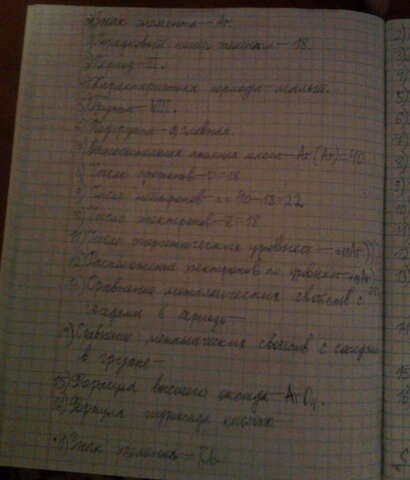 1) Знак элемента – Ar.
2) Порядковый номер элемента – 18.
3) Период – III.
4) Характеристика периода – малый.
5) Группа – VIII.
6) Подгруппа – главная.
7) Относительная атомная масса – Ar (Ar) = 40
8) Число протонов – = 18
9) Число нейтронов – n = 40 - 18 = 22
10) Число электронов – = 18
11) Число энергетических уровней –
12) Расположение электронов по уровням –
13) Сравнение металлических свойств с
соседями в периоде –
14) Сравнение металлических свойств с соседями
в группе –
15) Формула высшего оксида – ArO4.
16) Формула гидроксида
1) Знак элемента – Rb.